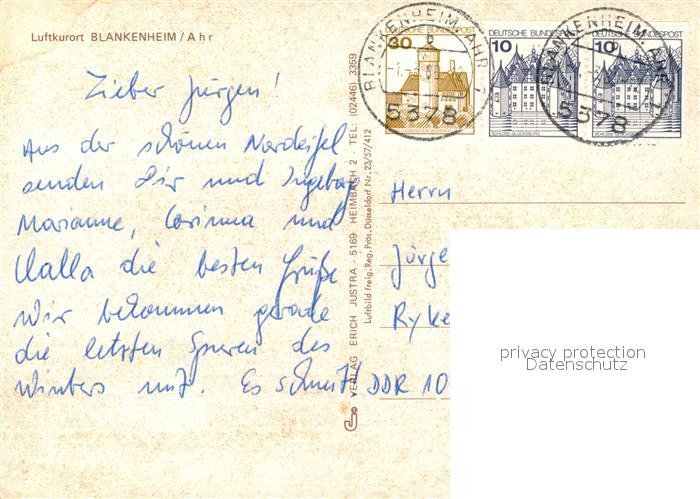 Luftkurort BLANKENHEIM / Ahr
Lieber Jürgen!
Aus der schönen Nordeifel
senden Dir und Ingeborg
Marianne, Corinna und
Kalla die besten Grüße
Wir bekommen gerade
die letzten Spuren des
Winters mit. Es schneit!
VERLAG ERICH JUSTRA · 5169 HEIMBACH 2 · TEL: (02446) 3359
Luftbild freig. Reg. Präs. Düsseldorf Nr. 23/57/412
DEUTSCHE BUNDESPOST
30
DEUTSCHE BUNDESPOST
10
SCHLOSS GLÜCKSBURG
DEUTSCHE BUNDESPOST
10
BLANKENHEIM, AHR 1
5378
BLANKENHEIM, AHR
5378
Herrn
Jürge
Ryke
DDR 10
privacy protection
Datenschutz